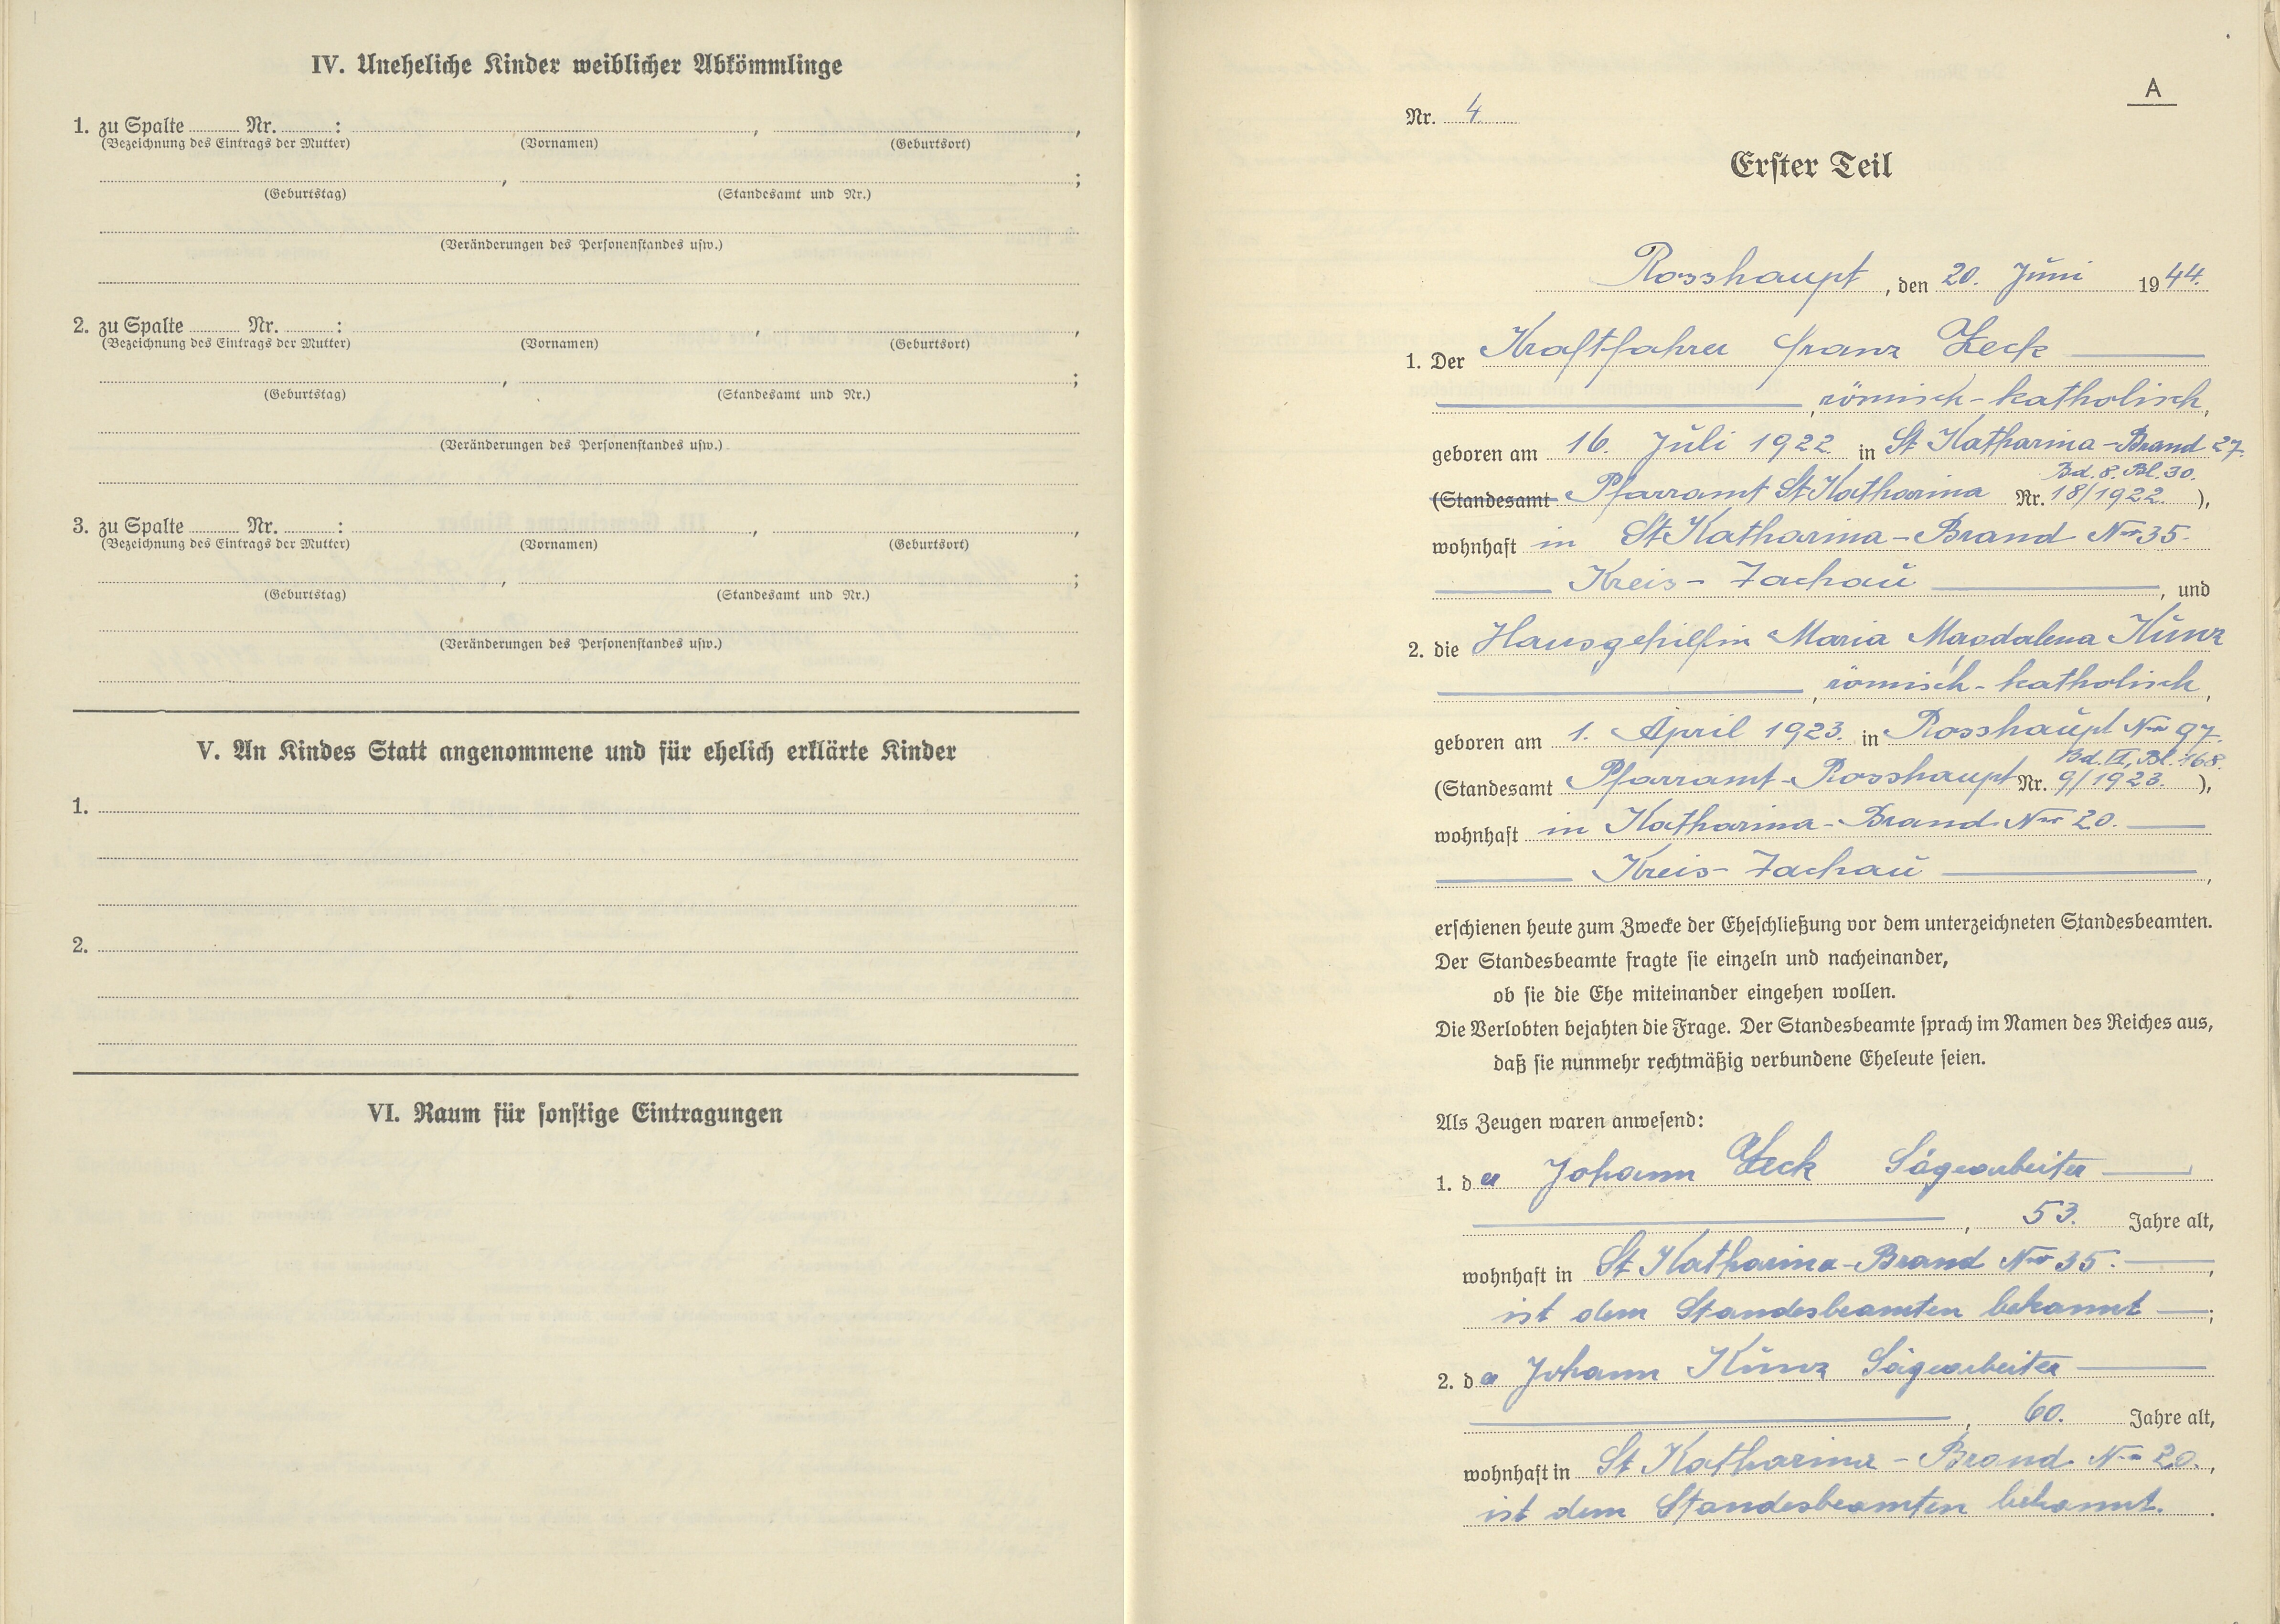 IV. Uneheliche Kinder weiblicher Abkömmlinge
1. zu Spalte ........ Nr. ........ : ........ , ........ ,
(Bezeichnung des Eintrags der Mutter) (Vornamen) (Geburtsort)
........ , ........ ;
(Geburtstag) (Standesamt und Nr.)
(Veränderungen des Personenstandes usw.)
2. zu Spalte ........ Nr. ........ : ........ , ........ ,
(Bezeichnung des Eintrags der Mutter) (Vornamen) (Geburtsort)
........ , ........ ;
(Geburtstag) (Standesamt und Nr.)
(Veränderungen des Personenstandes usw.)
3. zu Spalte ........ Nr. ........ : ........ , ........ ,
(Bezeichnung des Eintrags der Mutter) (Vornamen) (Geburtsort)
........ , ........ ;
(Geburtstag) (Standesamt und Nr.)
(Veränderungen des Personenstandes usw.)
V. An Kindes Statt angenommene und für ehelich erklärte Kinder
1.
2.
VI. Raum für sonstige Eintragungen
A
Nr. 4
Erster Teil
Rosshaupt, den 20. Juni 1944.
1. Der Kraftfahrer Franz Zeck
, römisch-katholisch,
geboren am 16. Juli 1922. in St Katharina-Brand 27.
Bd. 8. Bl. 30.
(Standesamt Pfarramt St Katharina Nr. 18/1922. ),
wohnhaft in St Katharina-Brand Nro 35.
Kreis-Tachau, und
2. die Hausgehilfin Maria Magdalena Kunz
, römisch-katholisch,
geboren am 1. April 1923. in Rosshaupt Nro 97.
Bd. Bl. 168.
(Standesamt Pfarramt-Rosshaupt Nr. 9/1923. ),
wohnhaft in Katharina-Brand Nro 20.
Kreis-Tachau,
erschienen heute zum Zwecke der Eheschließung vor dem unterzeichneten Standesbeamten.
Der Standesbeamte fragte sie einzeln und nacheinander,
ob sie die Ehe miteinander eingehen wollen.
Die Verlobten bejahten die Frage. Der Standesbeamte sprach im Namen des Reiches aus,
daß sie nunmehr rechtmäßig verbundene Eheleute seien.
Als Zeugen waren anwesend:
1. der Johann Zeck Sägearbeiter
, 53. Jahre alt,
wohnhaft in St Katharina-Brand Nro 35.,
ist dem Standesbeamten bekannt;
2. der Johann Kunz Sägearbeiter
, 60. Jahre alt,
wohnhaft in St Katharina-Brand Nro 20.,
ist dem Standesbeamten bekannt.